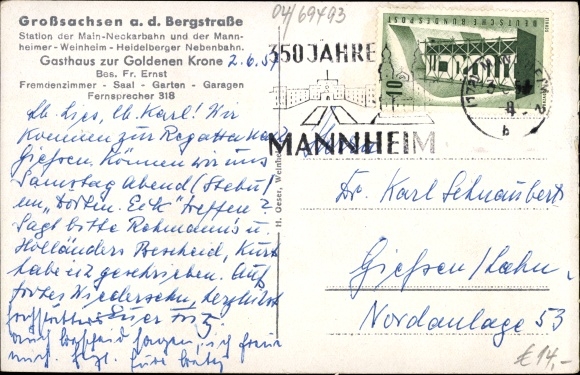 Großsachsen a. d. Bergstraße
Station der Main-Neckarbahn und der Mann-
heimer-Weinheim-Heidelberger Nebenbahn.
Gasthaus zur Goldenen Krone
Bes. Fr. Ernst
Fremdenzimmer - Saal - Garten - Garagen
Fernsprecher 318
2.6.57
Lb. Lies, lb. Karl! Wir
kommen zur Regatta nach
Giessen. Können wir uns
Samstag Abend
im "Dorten. Eck" treffen?
Sagt bitte Rehmanns u.
Holländers Bescheid, Kurt
habe ich geschrieben. Auf
frohes Wiedersehn, herzlichst
Euer Fritz
04/69493
350 JAHRE
MANNHEIM
DEUTSCHE BUNDESPOST
10
b
H. Oeser, Weinheim
Dr. Karl Schnaubert
Giessen/Lahn
Nordanlage 53
€ 14,-